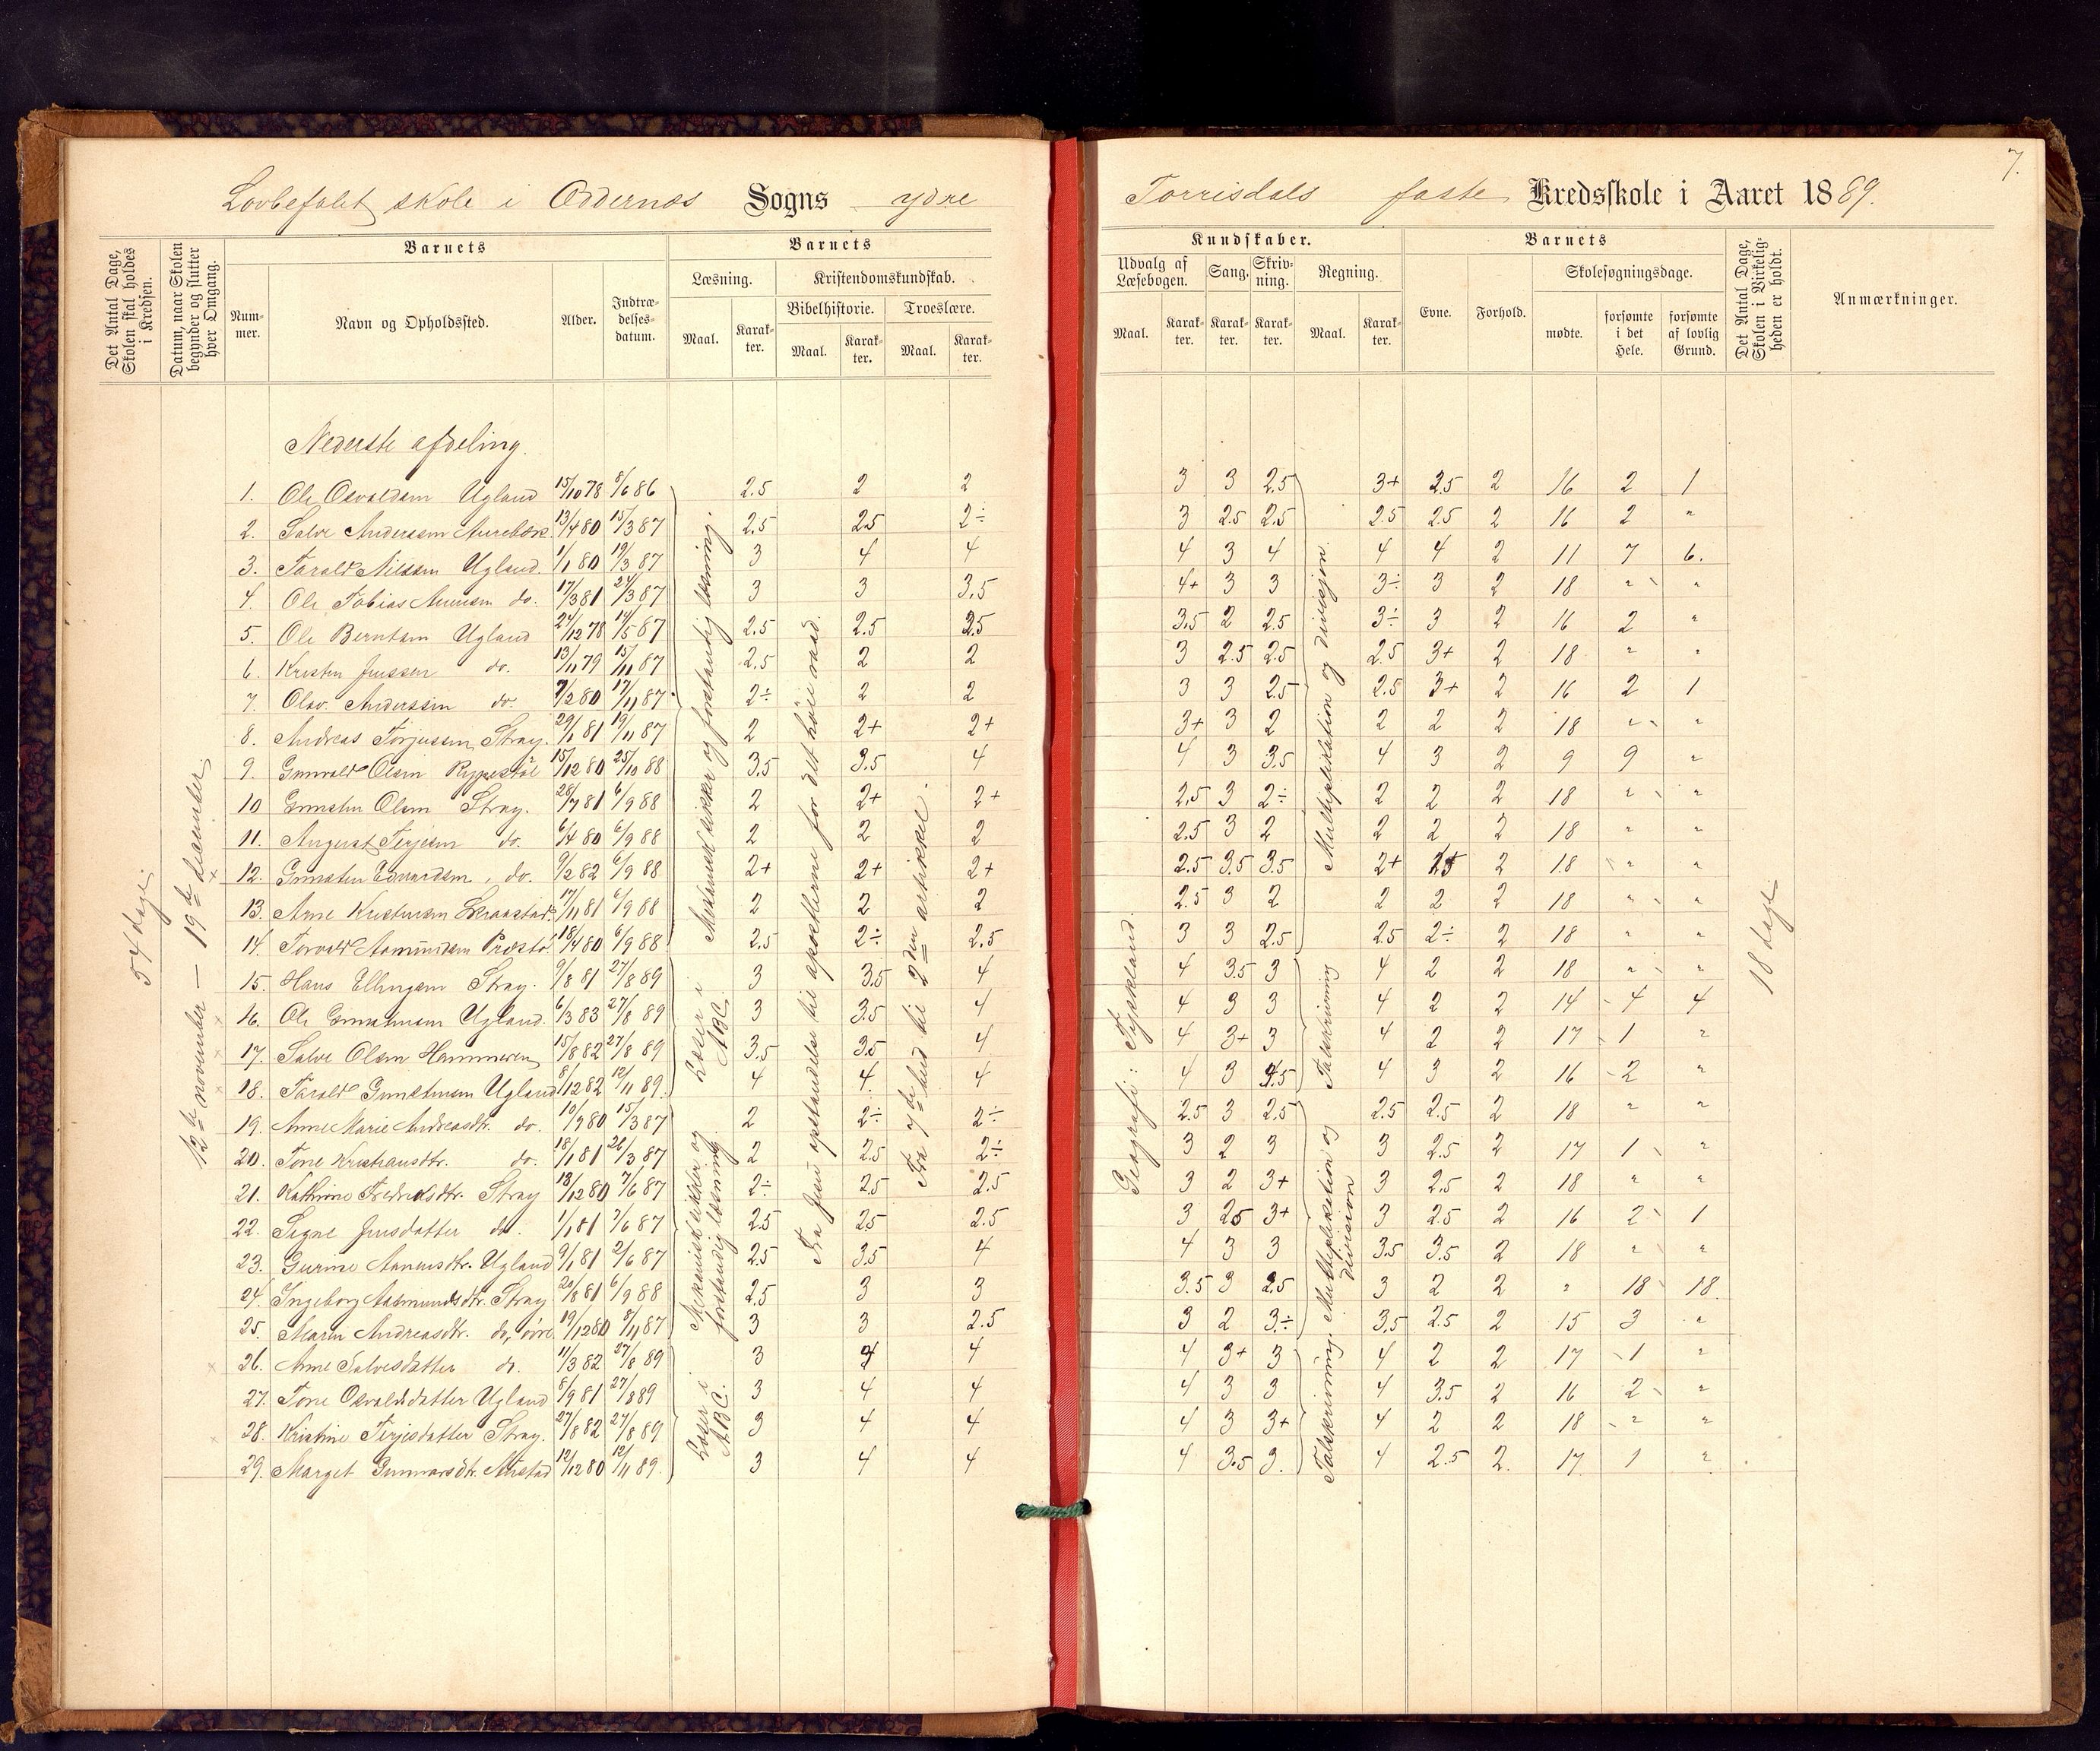 7.
Lovbefalet skole i Oddernæs Sogns ydre Torrisdals faste Kredsskole i Aaret 1889.
Det Antal Dage, Skolen skal holdes i Kredsen.
Datum, naar Skolen begynder og slutter hver Omgang.
Barnets
Nummer.
Navn og Opholdssted.
Alder.
Indtrædelsesdatum.
Barnets
Læsning.
Maal.
Karakter.
Kristendomskundskab.
Bibelhistorie.
Maal.
Karakter.
Troeslære.
Maal.
Karakter.
Kundskaber.
Udvalg af Læsebogen.
Maal.
Karakter.
Sang.
Karakter.
Skrivning.
Karakter.
Regning.
Maal.
Karakter.
Barnets
Evne.
Forhold.
Skolesøgningsdage.
mødte.
forsømte i det Hele.
forsømte af lovlig Grund.
Det Antal Dage, Skolen i Virkeligheden er holdt.
Anmærkninger.
54 dage.
12te november — 19de december.
Nederste afdeling.
1. Ole Osvaldsen Ugland 15/10 78 8/6 86 2.5 2 2 3 3 2.5 3+ 2.5 2 16 2 1
2. Salve Anderssen 13/4 80 15/3 87 2.5 2.5 2÷ 3 2.5 2.5 2.5 2.5 2 16 2 "
3. Tarald Nilssen Ugland. 1/1 80 19/3 87 3 4 4 4 3 4 4 4 2 11 7 6.
4. Ole Tobias do. 17/3 81 24/3 87 3 3 3.5 4+ 3 3 3÷ 3 2 18 " "
5. Ole Berntsen Ugland 24/12 78 14/5 87 2.5 2.5 2.5 3.5 2 2.5 3÷ 3 2 16 2 "
6. Kristen Jenssen do. 13/11 79 15/11 87 2.5 2 2 3 2.5 2.5 2.5 3+ 2 18 " "
7. Olav Anderssen do. 7/2 80 17/11 87 2÷ 2 2 3 3 2.5 2.5 3+ 2 16 2 1
8. Andreas Torjussen Stray. 29/1 81 19/11 87 2 2+ 2+ 3+ 3 2 2 2 2 18 " "
9. Gunvald Olsen Rypestøl 15/12 80 25/10 88 3.5 3.5 4 4 3 3.5 4 3 2 9 9 "
10 Olsen Stray. 28/7 81 6/9 88 2 2+ 2+ 2.5 3 2÷ 2 2 2 18 " "
11. August Terjesen do. 6/4 80 6/9 88 2 2 2 2.5 3 2 2 2 2 18 " "
12. Edvardsen do. 9/2 82 6/9 88 2+ 2+ 2+ 2.5 3.5 3.5 2+ 2 18 " "
13. Arne 17/11 81 6/9 88 2 2 2 2.5 3 2 2 2 2 18 " "
14. Torvald Aamundsen 18/4 80 6/9 88 2.5 2÷ 2.5 3 3 2.5 2.5 2÷ 2 18 " "
15. Hans Ellingsen Stray. 9/8 81 27/8 89 3 3.5 4 4 3.5 3 4 2 2 18 " "
16. Ole Ugland. 6/3 83 27/8 89 3 3.5 4 4 3 3 4 2 2 14 4 4
17. Salve Olsen Hammeren 15/8 82 27/8 89 3.5 3.5 4 4 3+ 3 4 2 2 17 1 "
18. Tarald Ugland 8/12 82 12/11 89. 4 4. 4 4 3 4 3 2 16 2 "
19. Anne Marie Andreasdtr. do. 10/9 80 15/3 87 2 2÷ 2÷ 2.5 3 2.5 2.5 2.5 2 18 " "
20. Tone Kristiansdtr. do. 18/1 81 26/3 87 2 2.5 2÷ 3 2 3 3 2.5 2 17 1 "
21. Kathrine Fredriksdtr. Stray 18/12 80 7/6 87 2÷ 2.5 2.5 3 2 3+ 3 2.5 2 18 " "
22. Signe Jensdatter do. 1/1 81 7/6 87 2.5 2.5 2.5 3 2.5 3+ 3 2.5 2 16 2 1
23. Gurine Ugland 9/1 81 2/6 87 2.5 3.5 4 4 3 3 3.5 3.5 2 18 " "
24. Ingeborg Aasmundsdtr. Stray 20/8 81 6/9 88 2.5 3 3 3.5 3 2.5 3 2 2 " 18 18.
25. Maren Andreasdtr. do, øvre 19/12 80 8/11 87 3 3 2.5 3 2 3÷ 3.5 2.5 2 15 3 "
26. Anne Salvesdatter do. 11/3 82 27/8 89 3 4 4 4 3+ 3 4 2 2 17 1 "
27. Tone Osvaldsdatter Ugland 8/9 81 27/8 89 3 4 4 4 3 3 4 3.5 2 16 2 "
28. Kristine Terjesdatter Stray. 27/8 82 27/8 89 3 4 4 4 3 3+ 4 2 2 18 " "
29. Marget Gunnarsdtr. 12/12 80 12/11 89. 3 4 4 4 3.5 3. 4 2.5 2. 17 1 "
Mekanisk sikker og forstandig læsning.
Læser i ABC.
Mekanisk sikker og forstandig læsning.
Læser i ABC.
Fra Jesu opstandelse til apostlerne for det høie raad.
Fra 7de bud til 2den artikkel.
Geografi: Tyskland.
Multiplikation og divisjon.
Talskrivning
Multiplikation og division
Talskrivning.
18 dage.